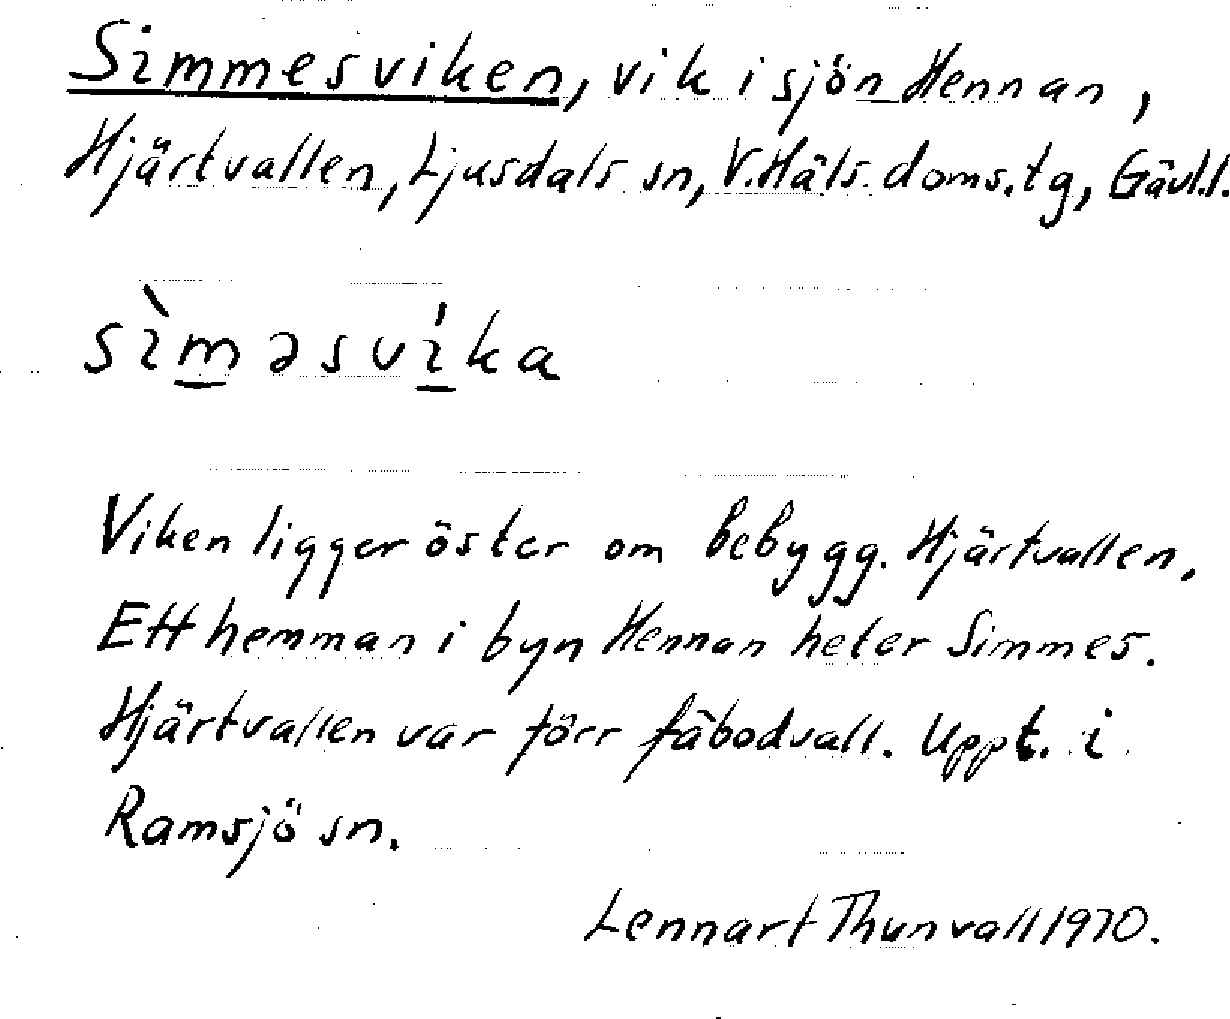 Simmesviken, vik i sjön Hennan,
Hjärtvallen, Ljusdals sn, V.Häls. doms.tg, Gävl.l.
sìməsvíka
Viken ligger öster om bebygg. Hjärtvallen.
Ett hemman i byn Hennan heter Simmes.
Hjärtvallen var förr fäbodvall. Uppt. i
Ramsjö sn.
Lennart Thunvall 1970.